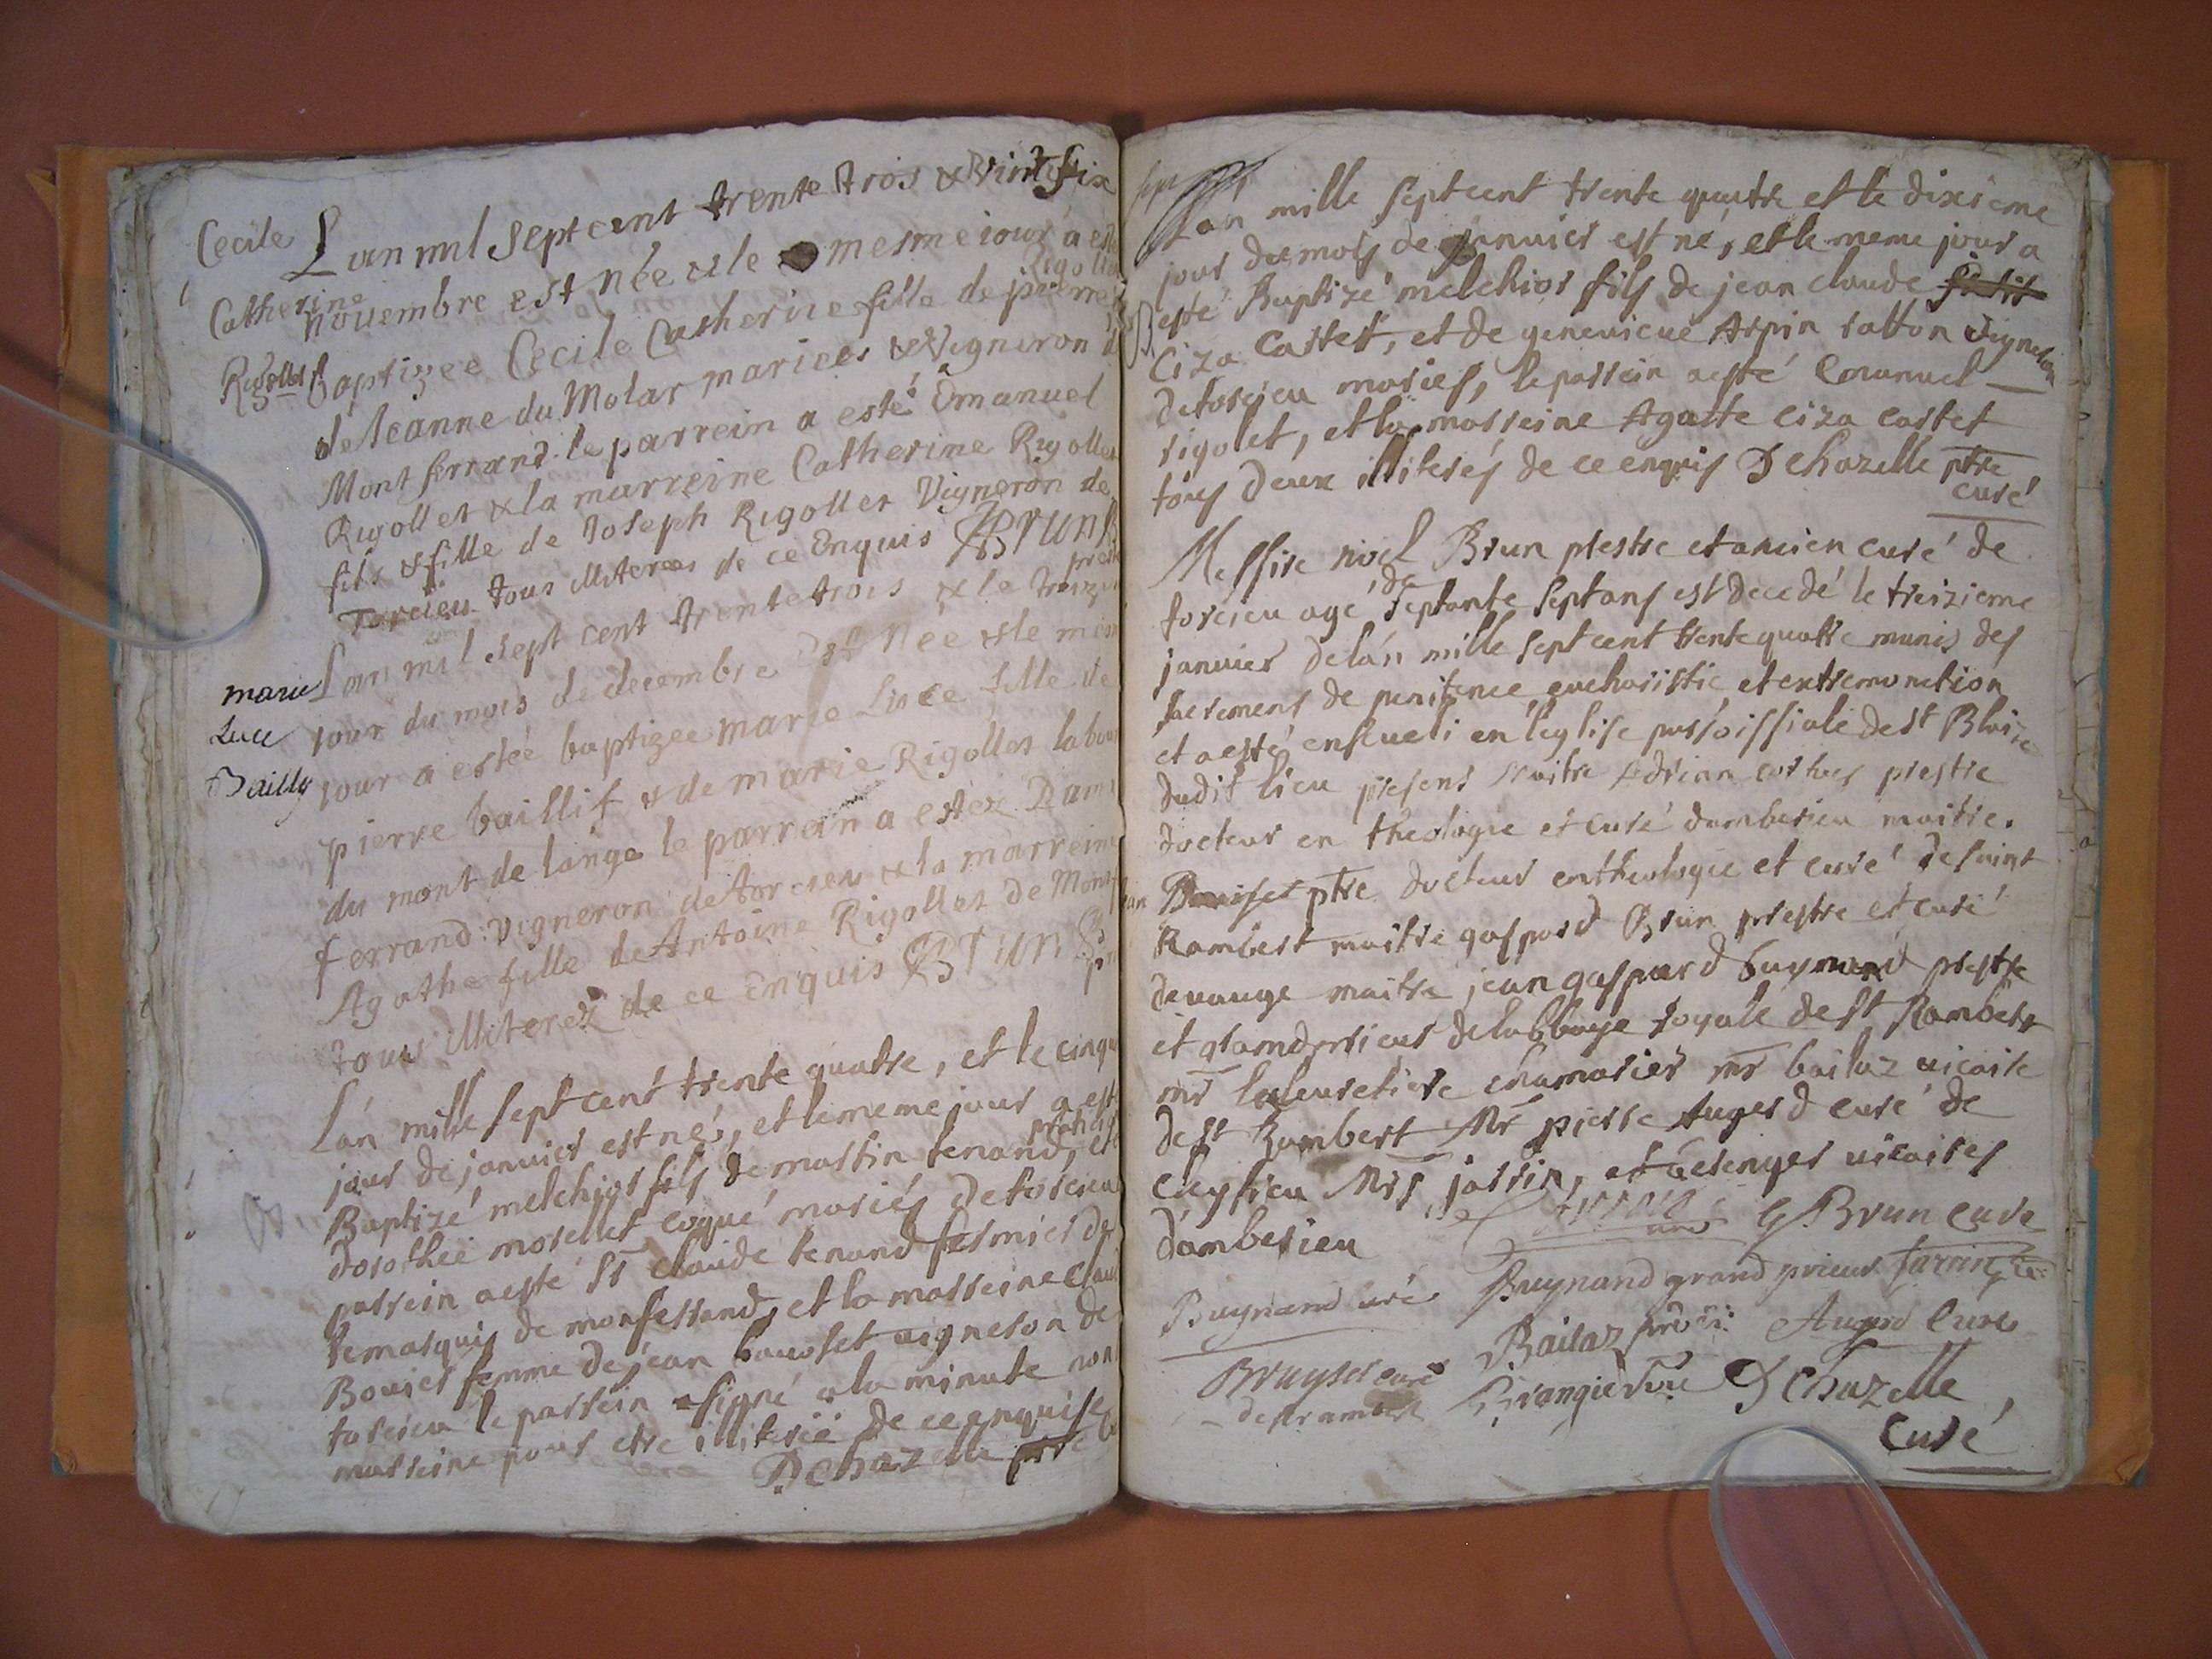 Cecile
Catherine
Rigollet
L'an mil sept cent trente trois & vint six
nouembre est née & le mesme iour a esté
baptizee Cecile Catherine fille de pierre Rigollet
de Jeanne du Molar mariees & Vigneron de
Mont ferrand le parrein a esté Emanuel
Rigollet & la marreine Catherine Rigollet
fils & fille de Joseph Rigollet Vigneron de
Torcieu tous illiterees de ce Enquis Brun
marie
Luce
Bailly
L'an mil sept cent trente trois & le treizi
jour du mois de decembre est Née & le mesme
jour a estée baptizee marie Luce fille de
pierre baillif & de marie Rigollet labou
du mont de lange le parrein a estez
ferrand Vigneron de torcieu & la marreine
Agathe fille de Antoine Rigollet de Mont
tous illiterez de ce Enquis Brun
L'án mille sept cent trente quatre, et le cinqu
jour de januier est né, et le meme jour a est
Baptizé melchior fils de martin tenand, et
dorothée morellet coqué mariés de torcieu
parrein aesté Sr claude tenand fermier de
le marquis de monferrand, et la marreine clau
Bouier femme de jean bauoset uigneron de
torcieu le parrein a signé a la minute non
marreine pour etre illiterée de ce enquise
D chazelle ptre
L'án mille septcent trente quatre et le dixieme
jour du mois de januier est né, et le meme jour a
esté Baptizé melchior fils de jean claude
Ciza Castet, et de geneuieue Arpin ratton uigneron
de torcieu mariés, le parrein aesté Emanuel
rigolet, et la marreine Agatte ciza castet
tous deux illiterés de ce enquis D chazelle ptre
curé
Messire noel Brun prestre et ancien curé de
torcieu agé de septante sept ans est decedé le treizieme
januier de lán mille sept cent trente quatre munis des
sacremens de penitence, eucharistie, et extremonction
et a esté enseueli en l'eglise parroissiale de st Blaise
dudit lieu presens maitre Adrian prestre
docteur en theologie et curé damberieu maitre
ptre docteur en theologie et curé de saint
Rambert maitre gaspard Brun prestre et curé
de uauge maitre jean gaspard buynand prestre
et grand prieur de labbaye royale de st Rambert
mr chamarier mr bailaz uicaire
de st Rambert Mr pierre Augerd curé de
cleyzieu Mrs jarrin, et berenger uicaires
d'amberieu
G. Brun cure
Buynand curé
Buynand grand prieur
Jarrin
Bailaz
Augerd Curé
Bruyset curé
de st rambert
D Chazelle
Curé